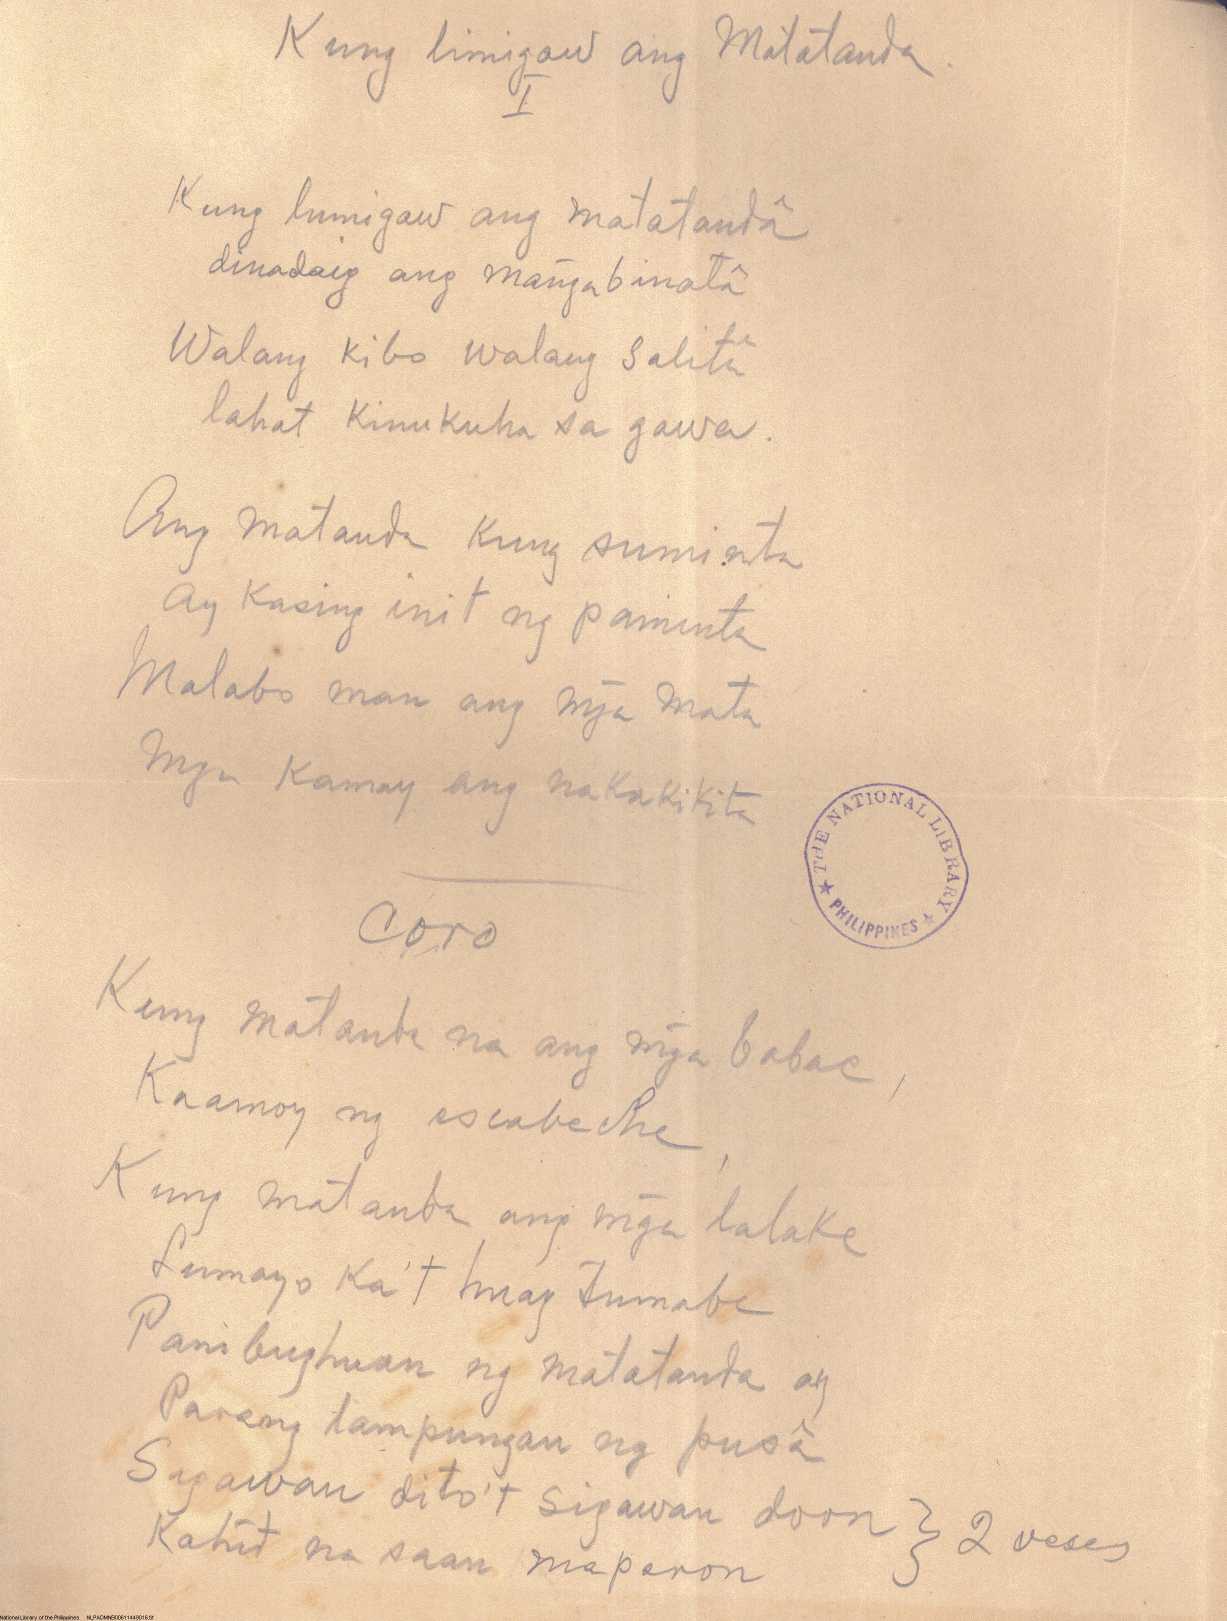 Kung limigaw ang Matatanda.
I
Kung lumigaw ang matatandâ
dinadaig ang mang̃abinatâ
Walang kibo walang salitâ
lahat kinukuha sa gawa.
Ang matanda kung suminta
ay kasing init ng paminta
Malabo man ang mg̃a mata
Mga kamay ang nakakikita
THE NATIONAL LIBRARY
PHILIPPINES
Coro
Kung matanda na ang mg̃a babae,
Kaamoy ng escabeche,
Kung matanda ang mg̃a lalake
Lumayo ka't huag tumabe
Panibughuan ng matatanda ay
Parang tampungan ng pusâ
Sigawan dito't sigawan doon } 2 veses
Kahit na saan maparon
National Library of the Philippines